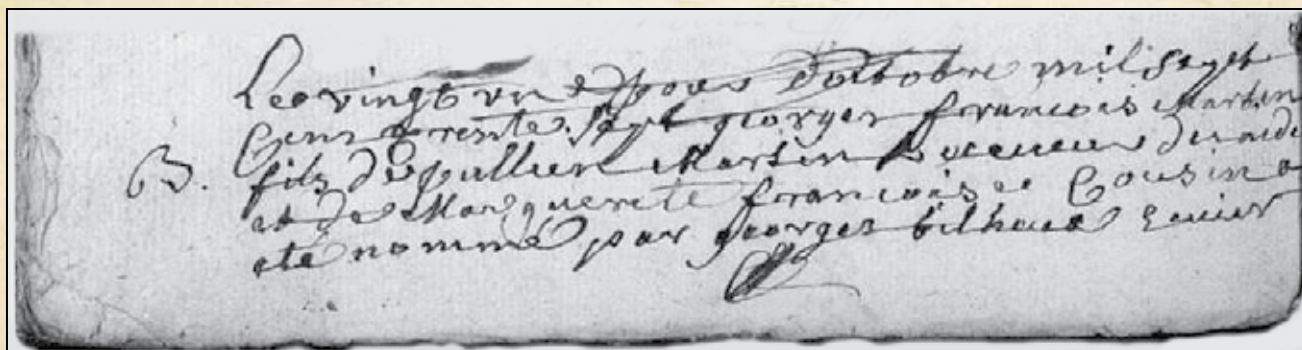 Le vingt un jour doctobre mil sept
Cent trente sept georges francois Martin
B. fils de jullien Martin Receveur des aides
et de Marguerite francoise Cousin a
ete nomme par georges bilheux